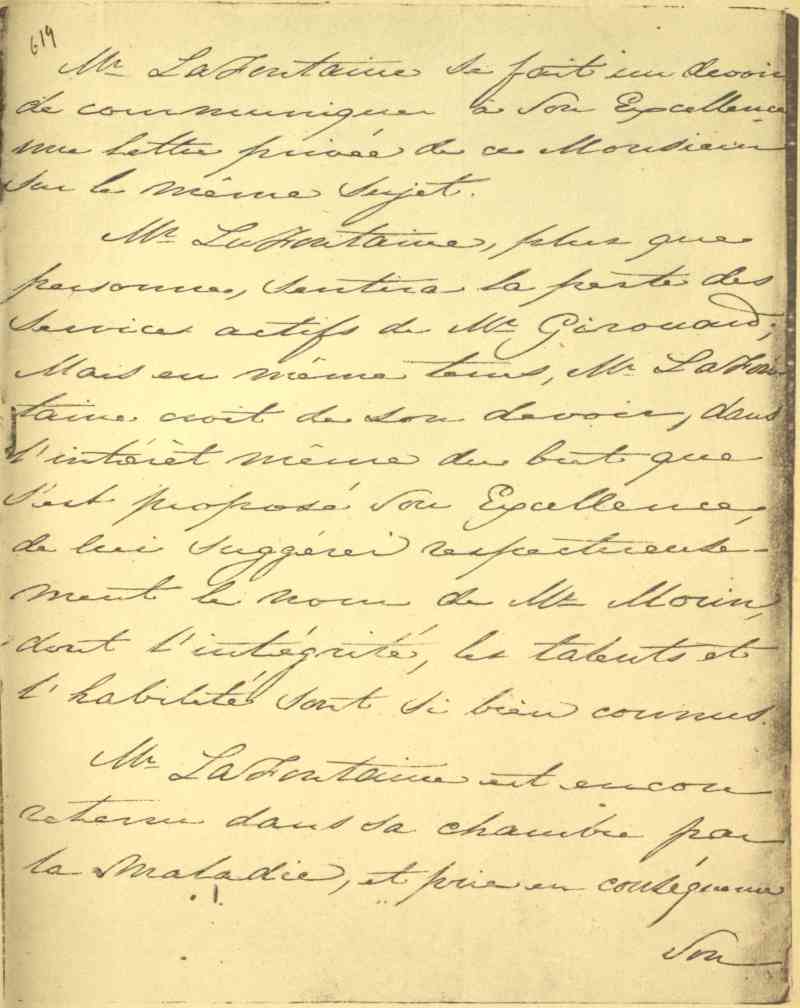 619
Mr LaFontaine se fait un devoir
de communiquer à Son Excellence
une lettre privée de ce Monsieur
sur le même sujet.
Mr LaFontaine, plus que
personne, sentira la perte des
services actifs de Mr Girouard;
Mais en même tems, Mr LaFon-
taine croit de son devoir, dans
l'intérêt même du but que
s'est proposé Son Excellence,
de lui suggérer respectueuse-
ment le nom de Mr Morin,
dont l'intégrité, les talents et
l'habilité sont si bien connus.
Mr LaFontaine est encore
retenu dans sa chambre par
la Maladie, et prie en conséquence
Son